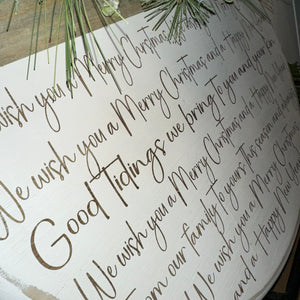 wish you a Merry Christmas
We wish you a Merry Christmas and a Happy
Good Tidings we bring to you and your kin
We wish you a Merry Christmas and a Happy
From our family to yours this season and
We wish you a Merry Christmas
and a Happy New Year